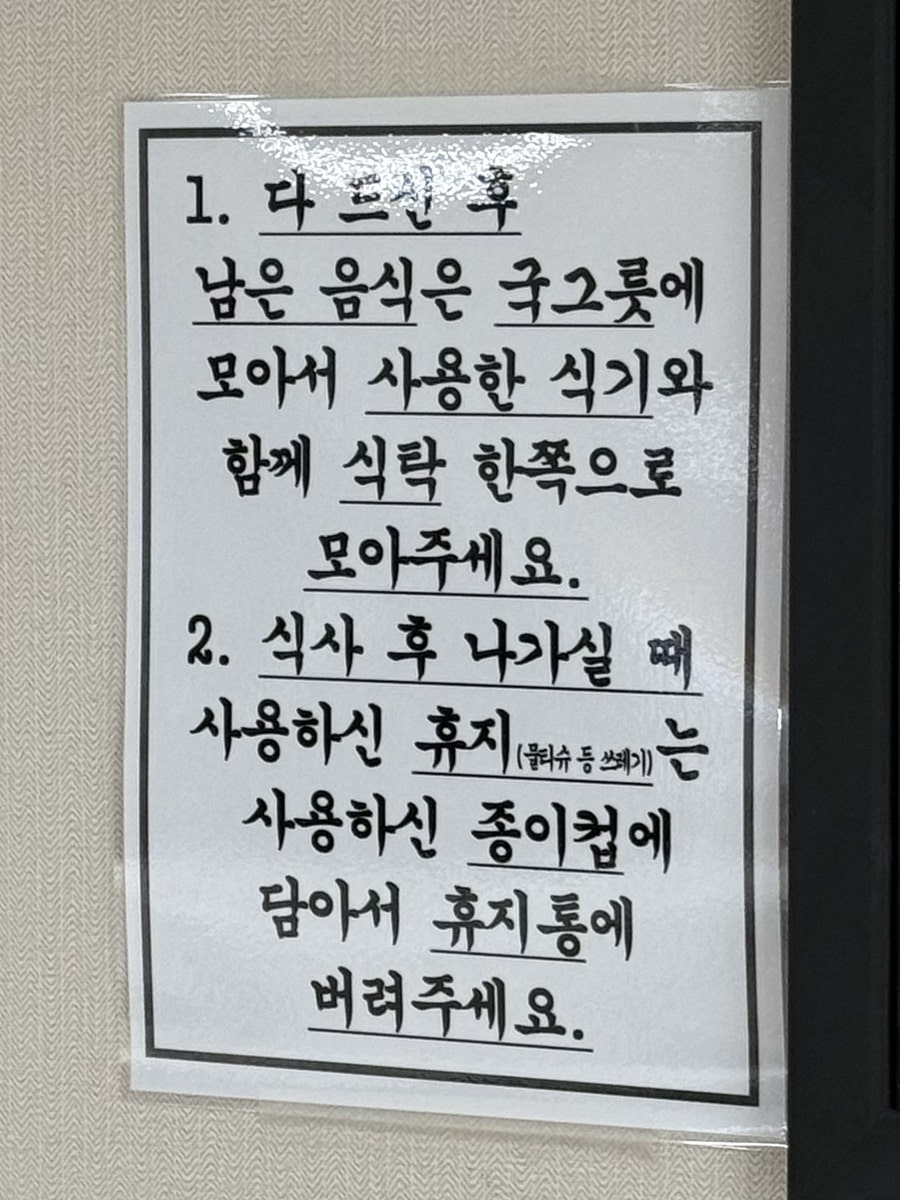 1. 다 드신 후
남은 음식은 국그릇에
모아서 사용한 식기와
함께 식탁 한쪽으로
모아주세요.
2. 식사 후 나가실 때
사용하신 휴지(물티슈 등 쓰레기)는
사용하신 종이컵에
담아서 휴지통에
버려주세요.